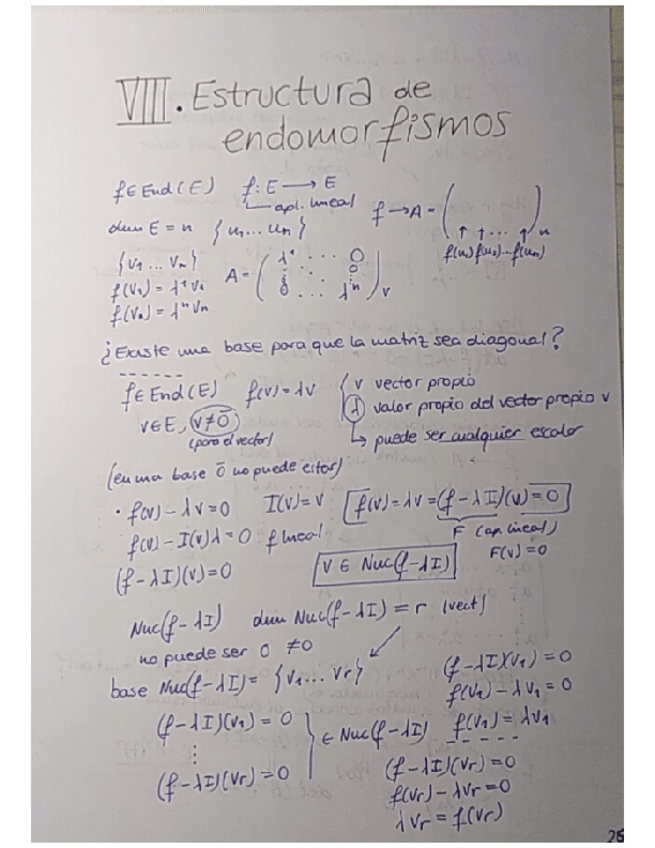 VIII. Estructura de
endomorfismos
f ∈ End(E) f: E → E
apl. lineal
f → A = ( ↑ ↑ ... ↑ )u
f(u₁) f(u₂) ... f(uₙ)
dim E = n {u₁ ... uₙ}
{v₁ ... vₙ}
f(v₁) = λ¹v₁
f(vₙ) = λⁿvₙ
A = ( λ¹ ... 0
0 ... λⁿ )v
¿Existe una base para que la matriz sea diagonal?
f ∈ End(E) f(v) = λv { v vector propio
v ∈ E, v ≠ 0̄ λ valor propio del vector propio v
(para el vector) ↳ puede ser cualquier escalar
(en una base 0̄ no puede estar)
· f(v) - λv = 0 I(v) = v f(v) = λv = (f - λI)(v) = 0
f(v) - I(v)λ = 0 f lineal F (ap. lineal)
(f - λI)(v) = 0 v ∈ Nuc(f - λI) F(v) = 0
Nuc(f - λI) dim Nuc(f - λI) = r (vect)
no puede ser 0 ≠0
base Nuc(f - λI) = {v₁ ... vᵣ}
(f - λI)(v₁) = 0
⋮
(f - λI)(vᵣ) = 0
} ∈ Nuc(f - λI)
(f - λI)(v₁) = 0
f(v₁) - λv₁ = 0
f(v₁) = λv₁
(f - λI)(vᵣ) = 0
f(vᵣ) - λvᵣ = 0
λvᵣ = f(vᵣ)
26